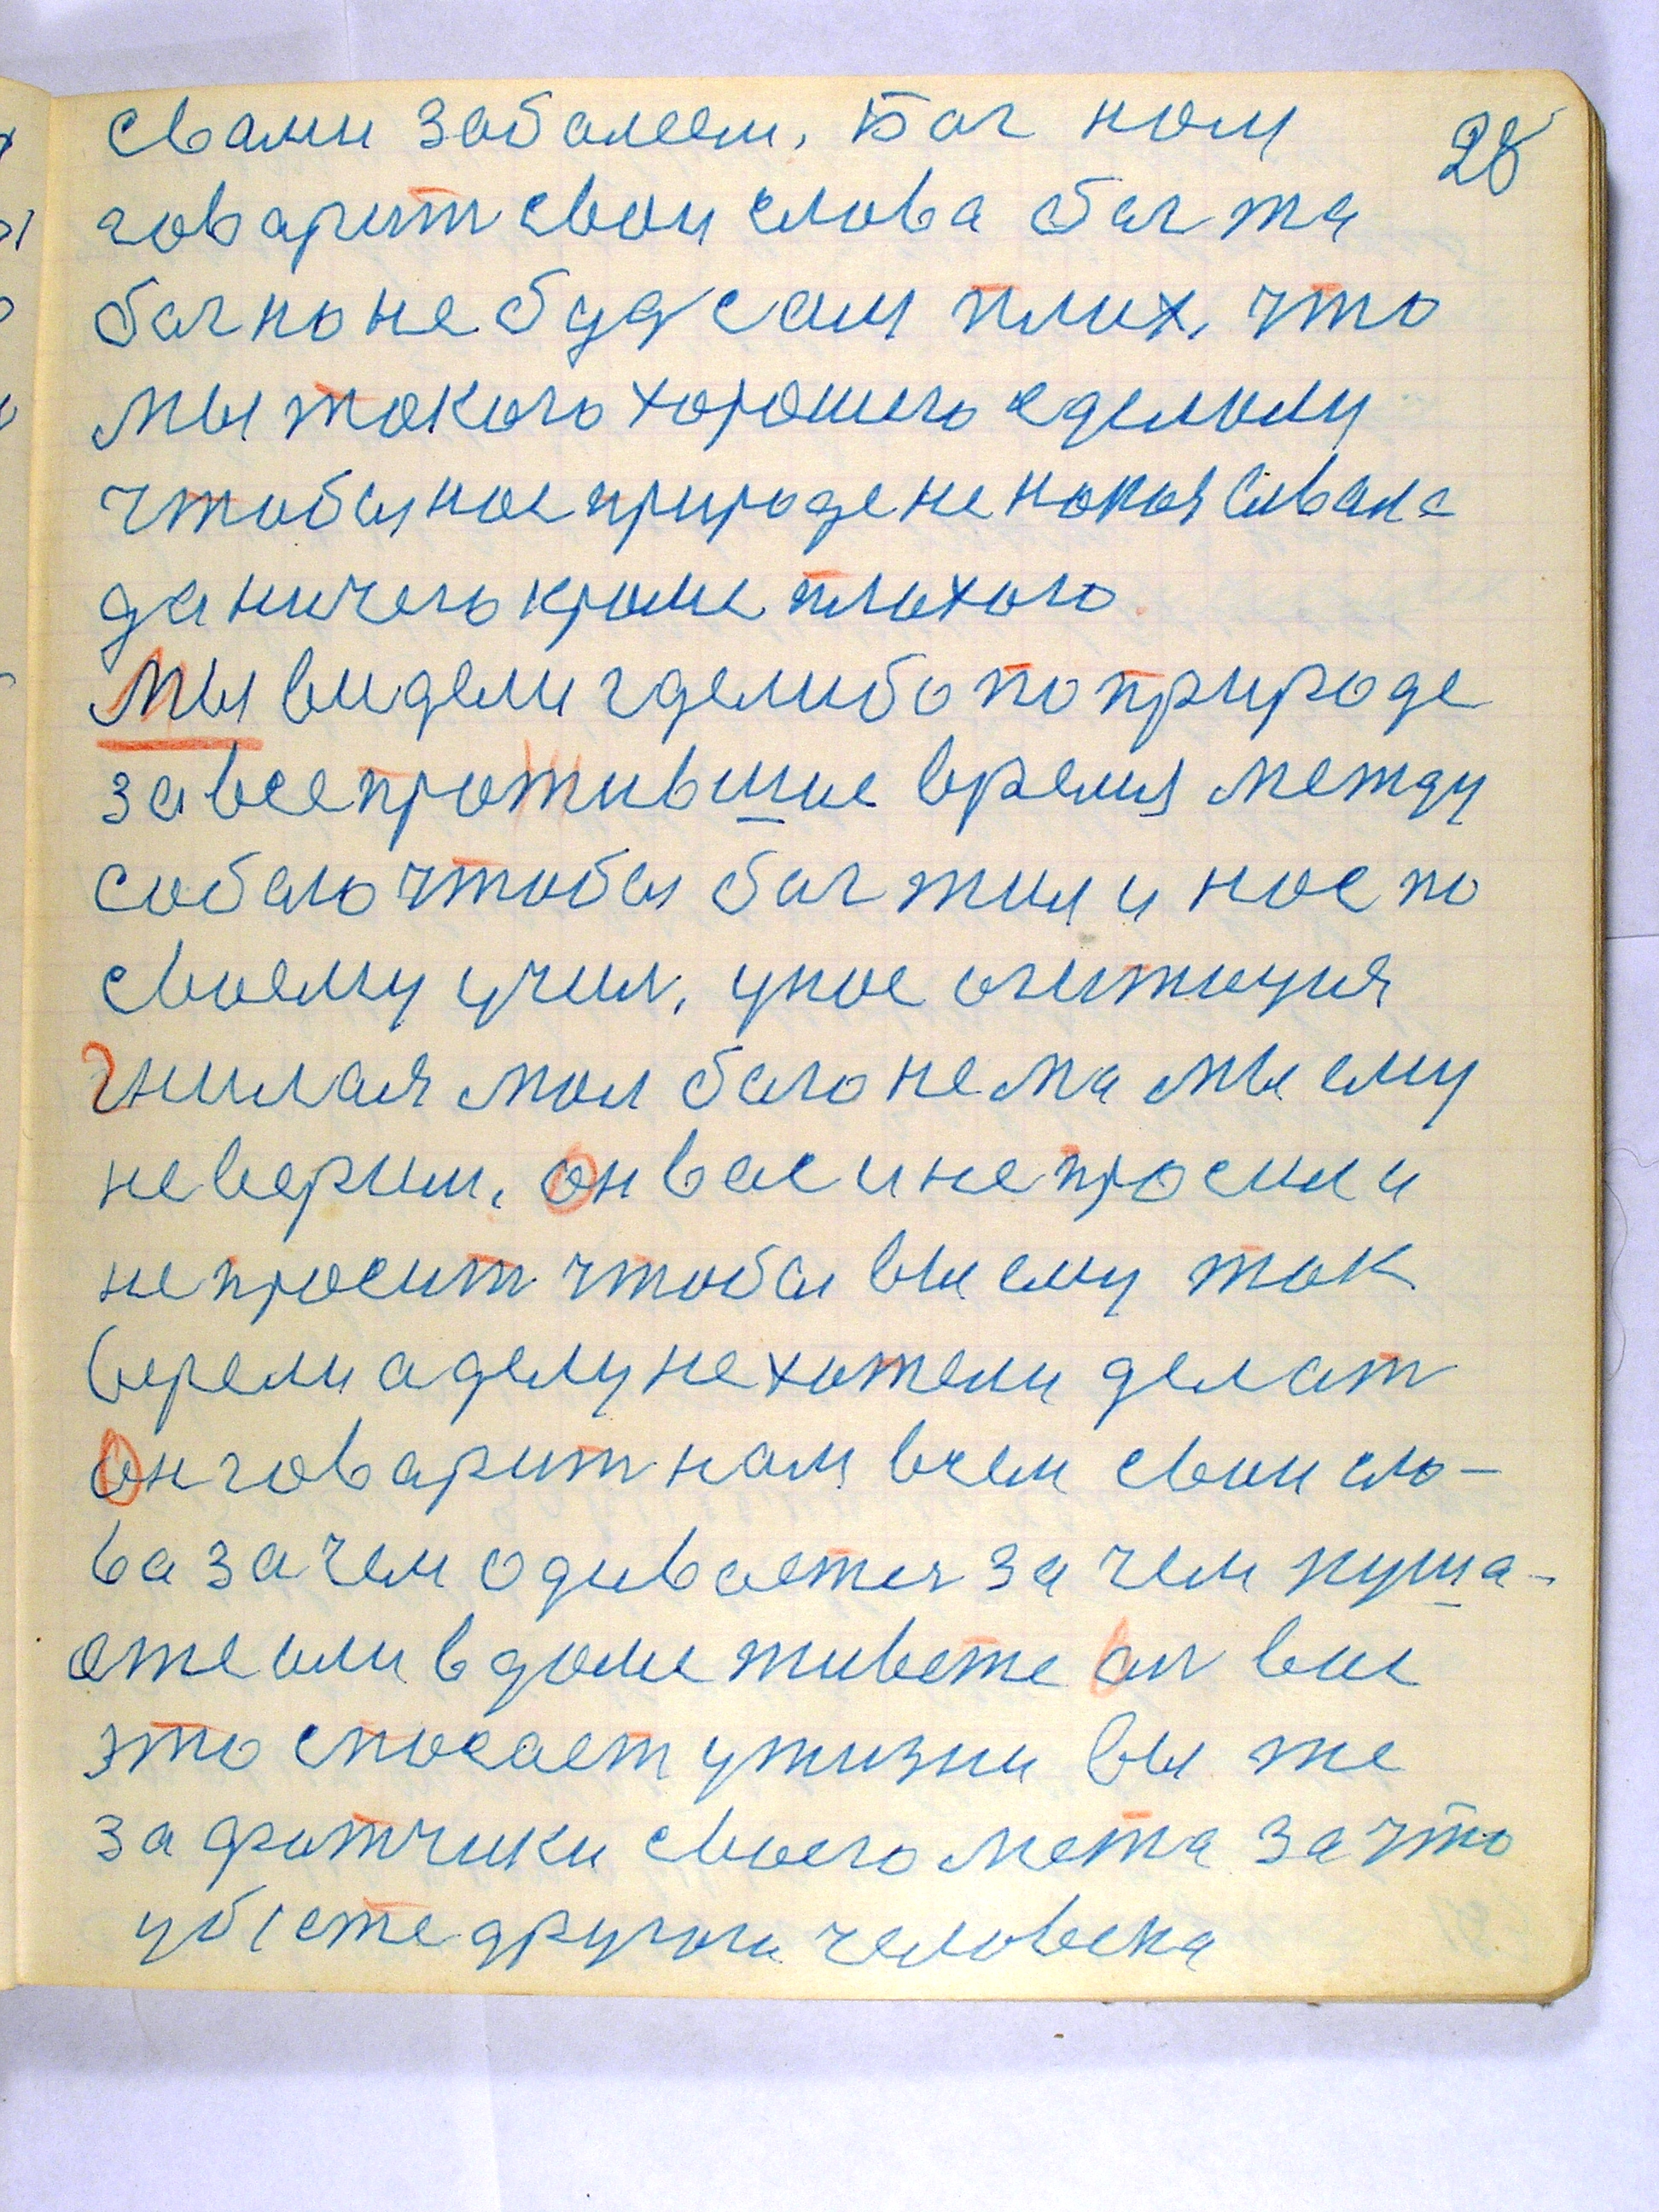 свами заболеем. Бог ном 28
говарит свои слова бог та
бог но не буд сам плих, что
мы токого хорошего сделолы
чтобы нос природе не нокозавала
да ничего кроме плохого.
Мы видели где либо по природе
за все прожившие время между
собою чтобы бог жил и нос по
своему учил, у нос агитоция
гнилая мол бого нема мы ему
не верим. он вас и не просил и
не просит чтобы вы ему ток
верели а делу не хотели делат
Он говарит нам всем свои сло-
ва зачем одиваетес зачем куша-
оте или в доме живете ай вас
это спосает у жизни вы же
захватчики своего места за что
убiете другога человека